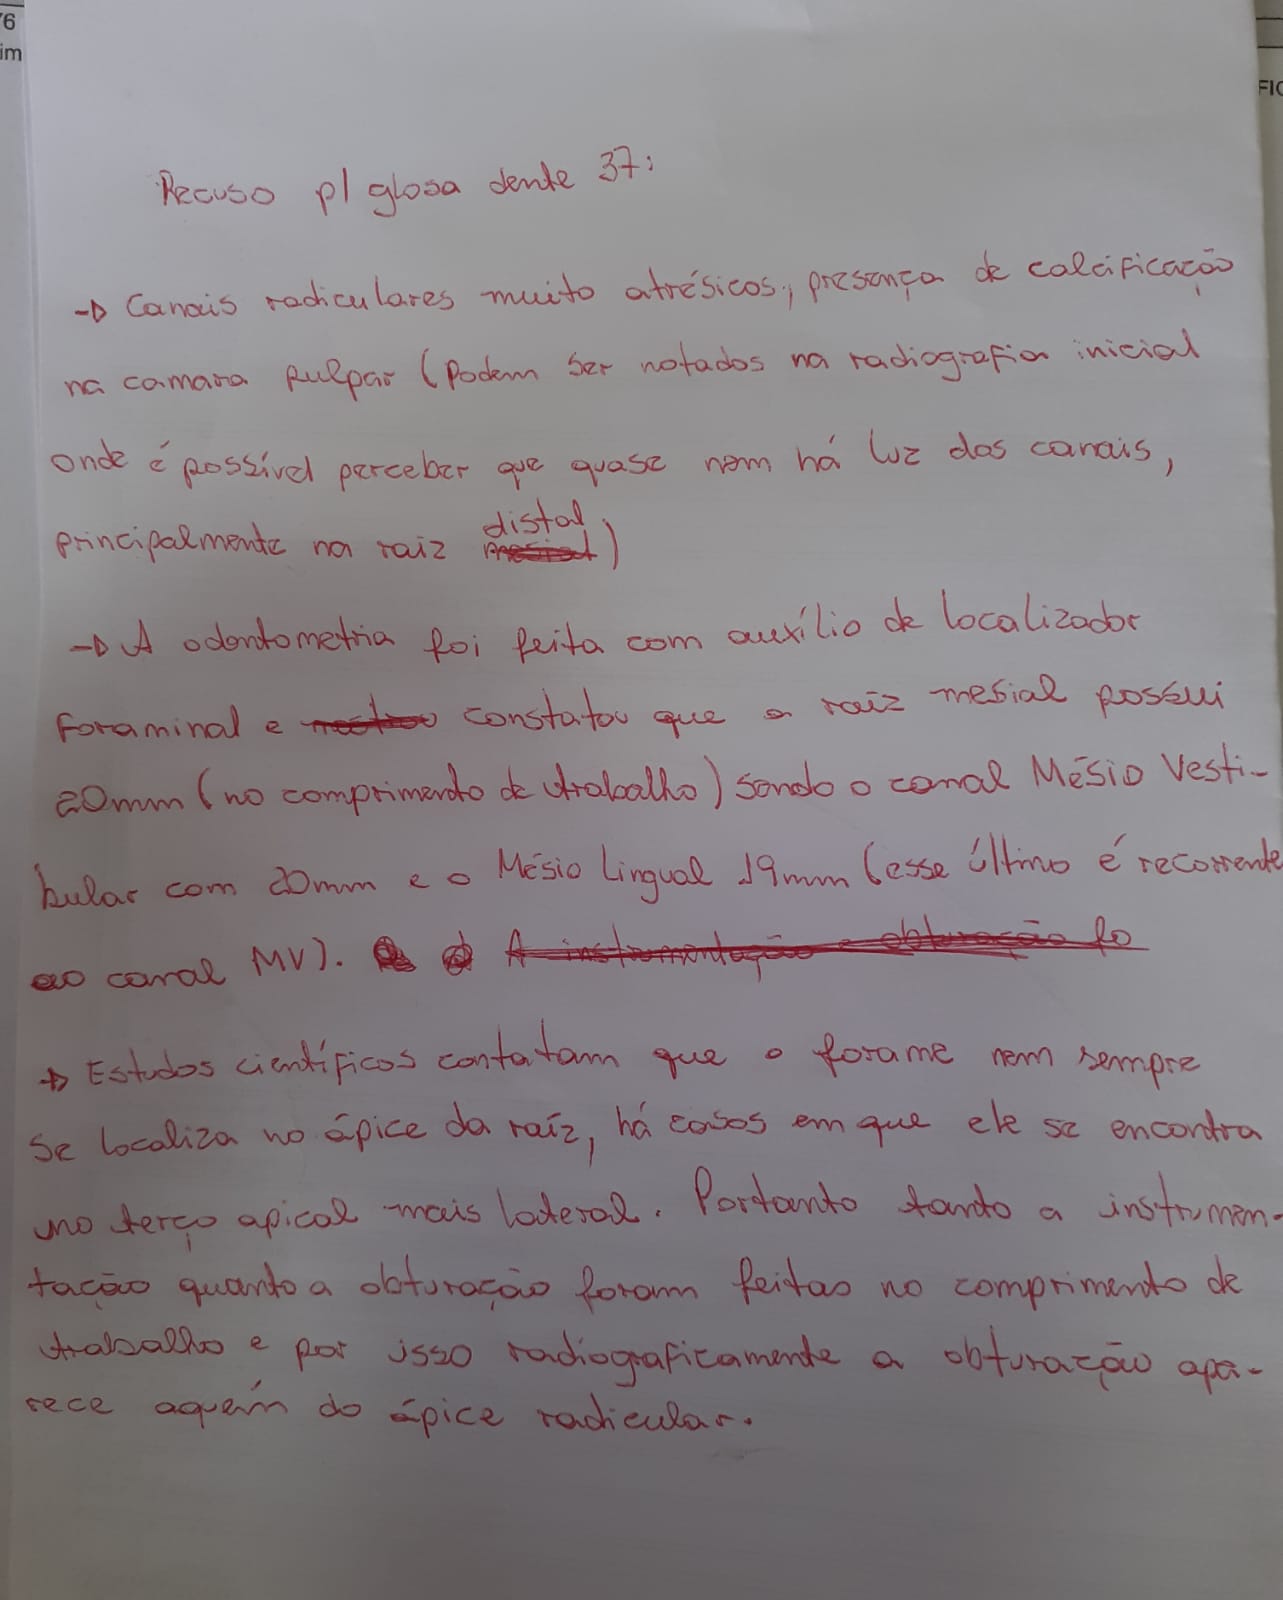 76
im
FIC
Recuso p/ glosa dente 37:
→ Canais radiculares muito atrésicos, presença de calcificação
na camara pulpar (Podem ser notados na radiografia inicial
onde é possível perceber que quase nem há luz dos canais,
principalmente na raiz distal)
→ A odontometria foi feita com auxílio de localizador
foraminal e constatou que a raiz mesial possui
20mm (no comprimento de trabalho) sendo o canal Mésio Vesti-
bular com 20mm e o Mésio Lingual 19mm (esse último é recorrente
ao canal MV). A instrumentação e obturação fo
→ Estudos científicos contatam que o forame nem sempre
se localiza no ápice da raíz, há casos em que ele se encontra
no terço apical mais lateral. Portanto tanto a instrumen-
tação quanto a obturação foram feitas no comprimento de
trabalho e por isso radiograficamente a obturação apa-
rece aquém do ápice radicular.